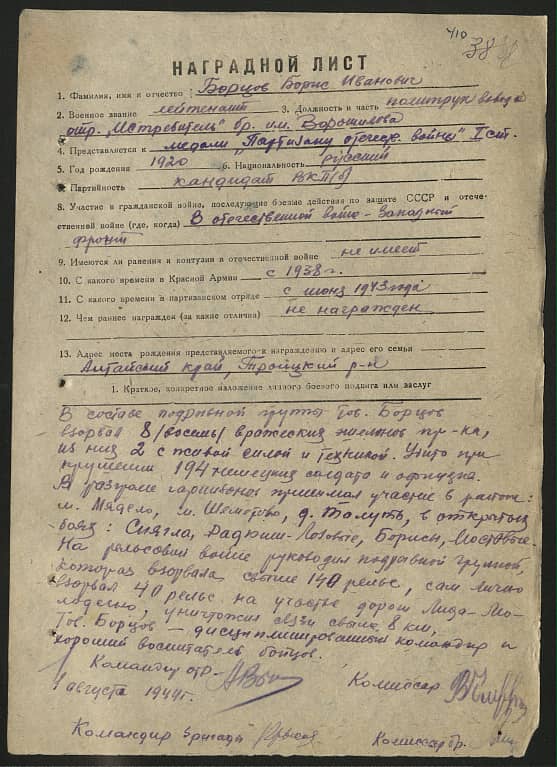 410
38
НАГРАДНОЙ ЛИСТ
1. Фамилия, имя и отчество Борцов Борис Иванович
2. Военное звание лейтенант 3. Должность и часть политрук взвода
отр. „Истребитель" бр. им. Ворошилова
4. Представляется к медали „Партизану отечеств. войны" I ст.
5. Год рождения 1920 6. Национальность русский
Партийность кандидат ВКП(б)
8. Участие в гражданской войне, последующие боевые действия по защите СССР и отече-
ственной войне (где, когда) В отечественной войне – Западный
фронт
9. Имеются ли ранения и контузии в отечественной войне не имеет
10. С какого времени в Красной Армии с 1938 г.
11. С какого времени в партизанском отряде с июня 1943 года
12. Чем раннее награжден (за какие отличия) не награжден
13. Адрес места рождения представляемого к награждению и адрес его семьи
Алтайский край, Троицкий р-н
1. Краткое, конкретное изложение личного боевого подвига или заслуг
В составе подрывной группы тов. Борцов
взорвал 8 /восемь/ вражеских эшелонов пр-ка,
из них 2 с живой силой и техникой. Убито при
крушении 194 немецких солдата и офицера.
В разгроме гарнизонов принимал участие в районе:
м. Мядело, м. Шеметово, д. Талуть, в открытых
боях: Сиягла, Боринн,
На рельсовой войне руководил подрывной группой,
которая взорвала свыше 140 рельс, сам лично
взорвал 40 рельс на участке дорог Лида – Мо-
лодечно, уничтожил связи свыше 8 км,
Тов. Борцов – дисциплинированный командир и
хороший воспитатель бойцов.
Командир отр. –
1 августа 1944 г. Комиссар
Командир бригады Комиссар бр.